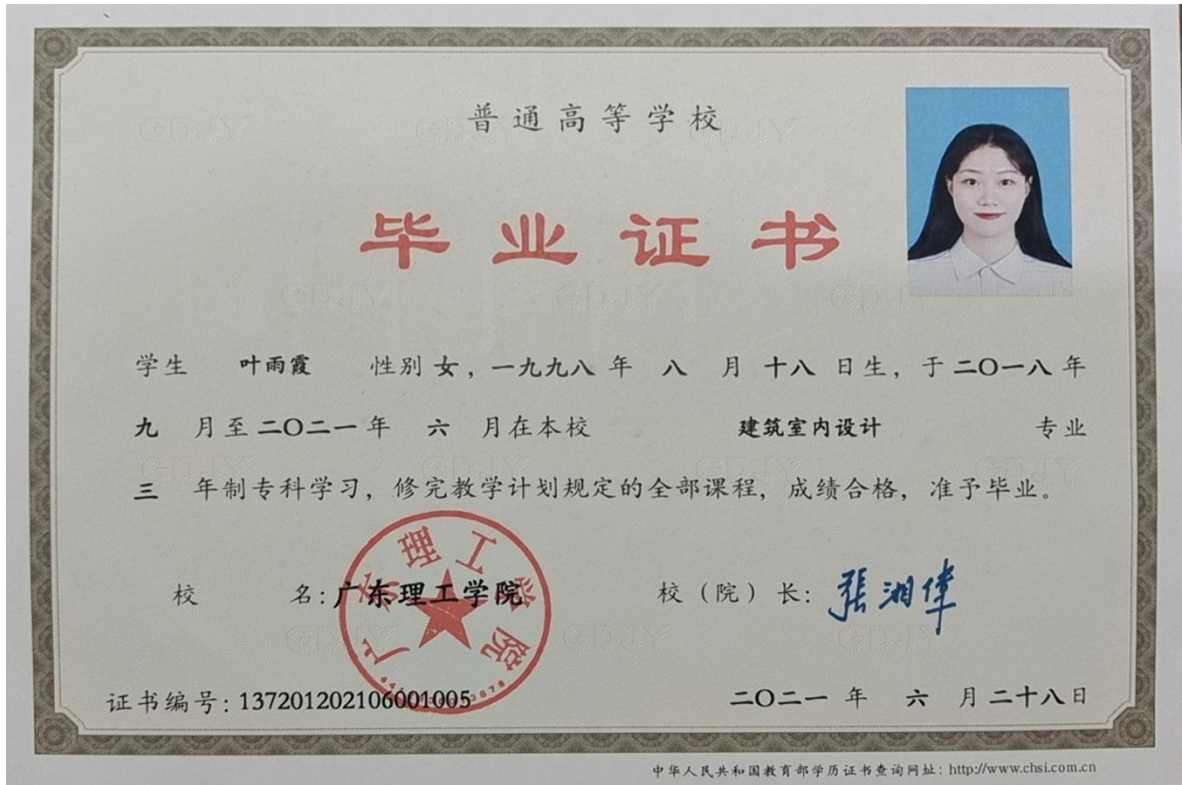 普通高等学校
毕业证书
学生 叶雨霞 性别 女，一九九八 年 八 月 十八 日生，于 二〇一八 年
九 月至 二〇二一 年 六 月在本校 建筑室内设计 专业
三 年制专科学习，修完教学计划规定的全部课程，成绩合格，准予毕业。
校 名：广东理工学院
校（院）长：张湘伟
广东理工学院
证书编号：137201202106001005
二〇二一 年 六 月 二十八 日
中华人民共和国教育部学历证书查询网址：http://www.chsi.com.cn
GDJY